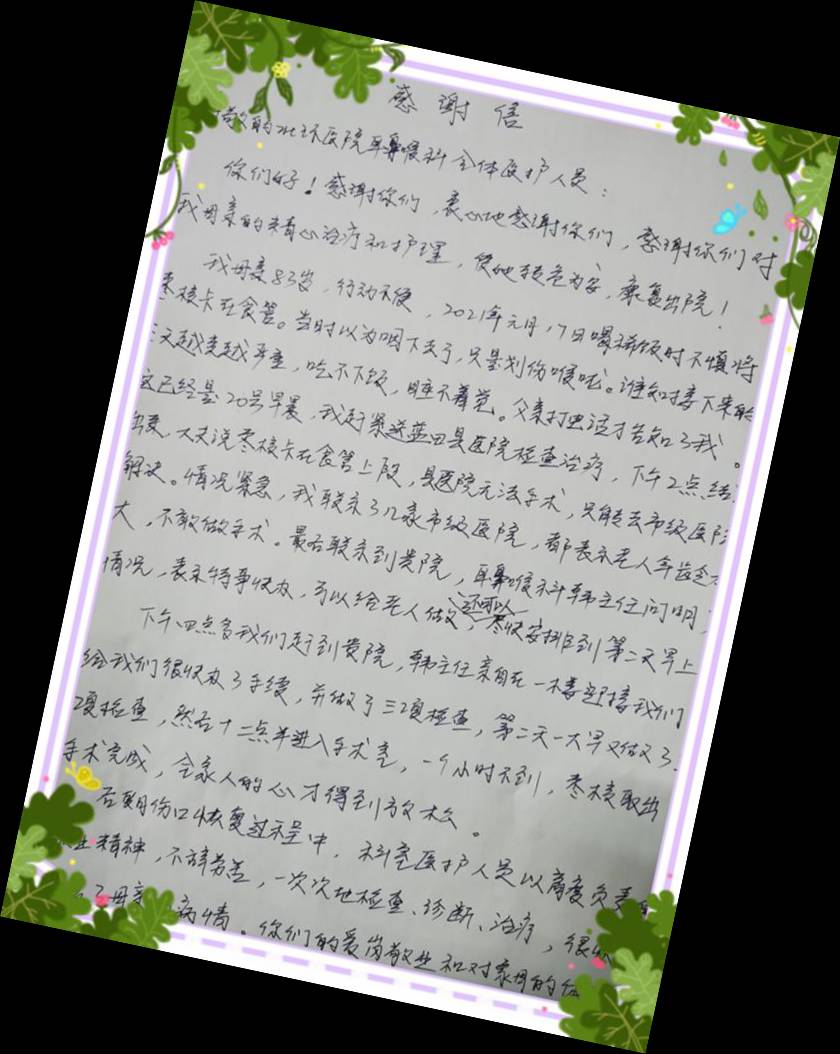 感谢信
敬的北环医院耳鼻喉科全体医护人员：
你们好！感谢你们，衷心地感谢你们，感谢你们对
我母亲的精心治疗和护理，使她转危为安，康复出院！
我母亲83岁，行动不便，2021年元月17日喝稀饭时不慎将
枣核卡在食管。当时以为咽下去了，只是划伤喉咙。谁知接下来的
三天越来越严重，吃不下饭，睡不着觉。父亲打电话才告知了我。
这已经是20号早晨，我赶紧送蓝田县医院检查治疗，下午2点结
出来，大夫说枣核卡在食管上段，县医院无法手术，只能去市级医院
解决。情况紧急，我联系了几家市级医院，都表示老人年龄
大，不敢做手术。最后联系到贵院，耳鼻喉科韩主任问明
情况，表示特事快办，可以给老人做，还可以尽快安排到第二天早上
下午四点多我们赶到贵院，韩主任亲自在一楼迎接我们
给我们很快办了手续，并做了三项检查，第二天一大早又做了3
项检查，然后十二点半进入手术室，一个小时不到，枣核取出
手术完成，全家人的心才得到放松。
后期伤口恢复过程中，科室医护人员以高度负责的
精神，不辞劳苦，一次次地检查、诊断、治疗，很
了母亲病情。你们的爱岗敬业和对家母的